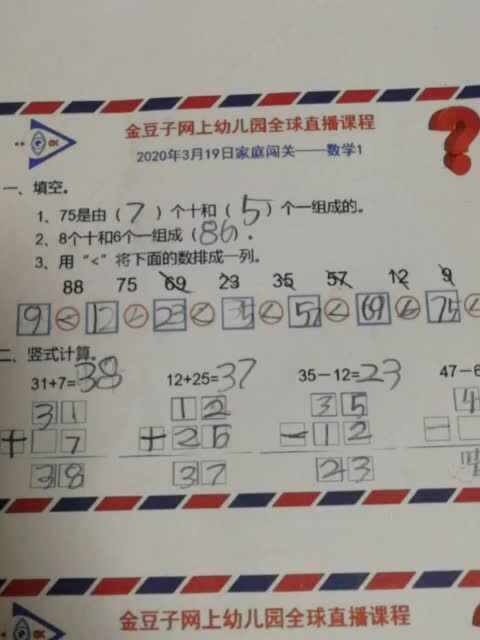 金豆子网上幼儿园全球直播课程
2020年3月19日家庭闯关——数学1
一、填空。
1、75是由（ 7 ）个十和（ 5 ）个一组成的。
2、8个十和6个一组成（86）.
3、用“<”将下面的数排成一列。
88 75 69 23 35 57 12 9
9 < 12 < 23 < 35 < 57 < 69 < 75 <
二、竖式计算。
31+7=38 12+25=37 35－12=23 47－6
31 12 35 4
+ 7 + 25 - 12 -
38 37 23
金豆子网上幼儿园全球直播课程